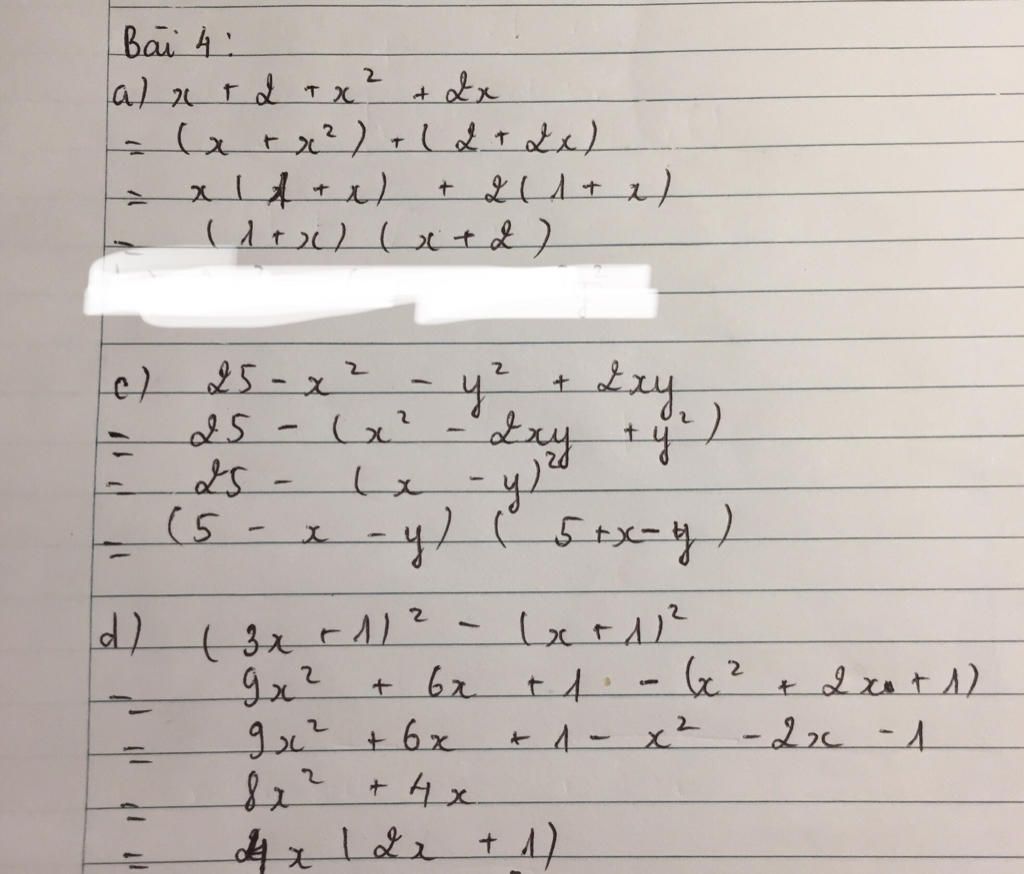 Bài 4:
a) x + 2 + x² + 2x
= (x + x²) + (2 + 2x)
= x(1 + x) + 2(1 + x)
= (1 + x) (x + 2)
c) 25 - x² - y² + 2xy
= 25 - (x² - 2xy + y²)
= 25 - (x - y)²
= (5 - x - y) (5 + x - y)
d) (3x + 1)² - (x + 1)²
= 9x² + 6x + 1 - (x² + 2x + 1)
= 9x² + 6x + 1 - x² - 2x - 1
= 8x² + 4x
= 4x (2x + 1)